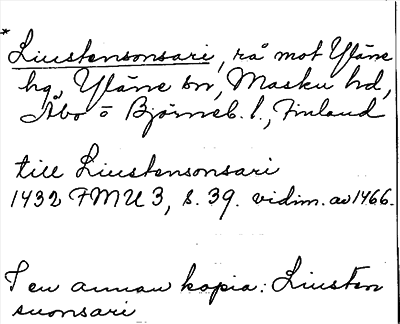 * Liustensonsari, rå mot Yläne
hg, Yläne sn, Masku hd,
Åbo o Björneb. l., Finland
till Liustensonsari
1432 FMU 3, s. 39. vidim. av 1466.
I en annan kopia: Liusten
suonsari